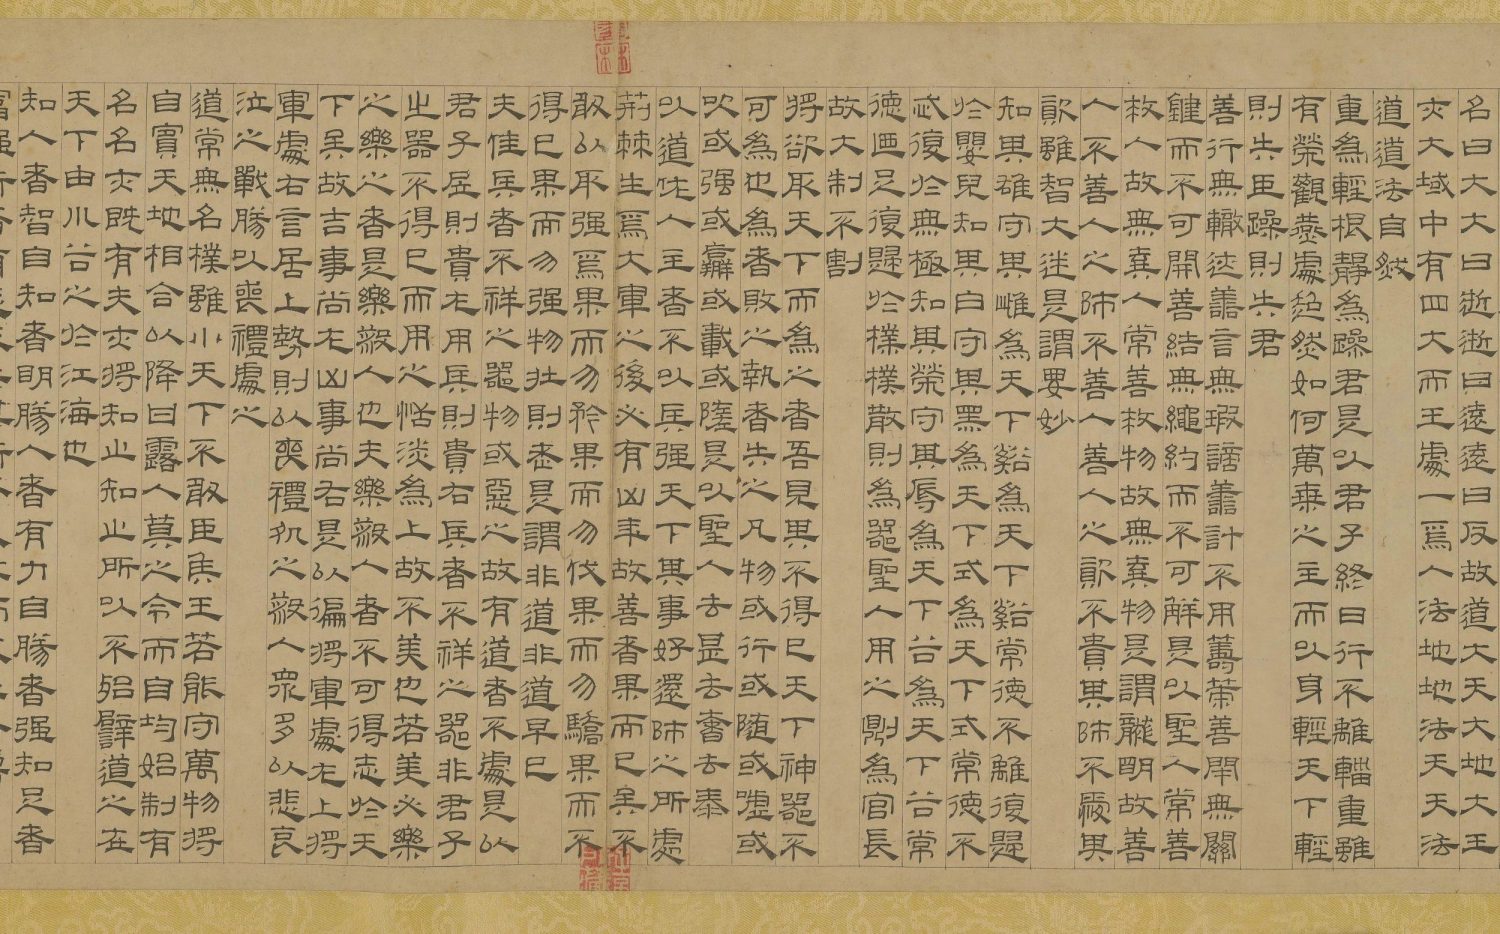 名曰大大曰逝逝曰遠遠曰反故道大天大地大王
亦大域中有四大而王處一焉人法地地法天天法
道道法自然
重為輕根靜為躁君是以君子終日行不離輜重雖
有榮觀燕處超然如何萬乘之主而以身輕天下輕
則失臣躁則失君
善行無轍迹善言無瑕謫善計不用籌策善閉無關
鍵而不可開善結無繩約而不可解是以聖人常善
救人故無棄人常善救物故無棄物是謂襲明故善
人不善人之師不善人善人之資不貴其師不愛其
資雖智大迷是謂要妙
知其雄守其雌為天下谿為天下谿常德不離復歸
於嬰兒知其白守其黑為天下式為天下式常德不
忒復於無極知其榮守其辱為天下谷為天下谷常
德迺足復歸於樸樸散則為器聖人用之則為官長
故大制不割
將欲取天下而為之者吾見其不得已天下神器不
可為也為者敗之執者失之凡物或行或随或噓或
吹或强或羸或載或隳是以聖人去甚去奢去泰
以道佐人主者不以兵强天下其事好還師之所處
荊棘生焉大軍之後必有凶年故善者果而已矣不
敢以取强焉果而勿矜果而勿伐果而勿驕果而不
得已果而勿强物壯則老是謂非道非道早已
夫佳兵者不祥之器物或惡之故有道者不處是以
君子居則貴左用兵則貴右兵者不祥之器非君子
之器不得已而用之恬淡為上故不美也若美必樂
之樂之者是樂殺人也夫樂殺人者不可得志於天
下矣故吉事尚左凶事尚右是以偏將軍處左上將
軍處右言居上勢則以喪禮処之殺人眾多以悲哀
泣之戰勝以喪禮處之
道常無名樸雖小天下不敢臣侯王若能守萬物將
自賓天地相合以降甘露人莫之令而自均始制有
名名亦既有夫亦將知止知止所以不殆譬道之在
天下由川谷之於江海也
知人者智自知者明勝人者有力自勝者强知足者